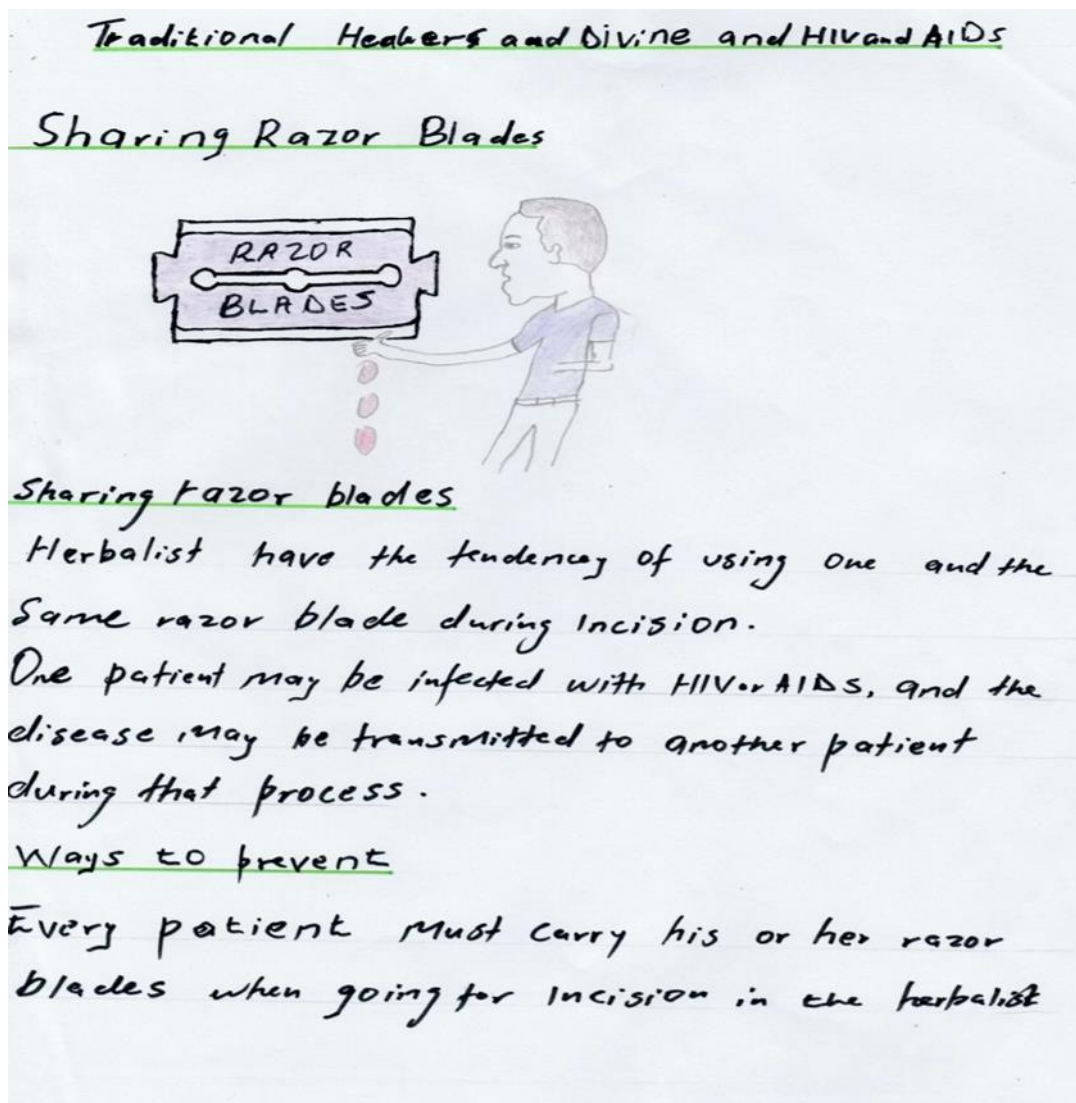 Traditional Healers and Divine and HIV and AIDs
Sharing Razor Blades
RAZOR
BLADES
Sharing razor blades
Herbalist have the tendency of using one and the
Same razor blade during Incision.
One patient may be infected with HIV or AIDS, and the
disease may be transmitted to another patient
during that process.
Ways to prevent
Every patient must carry his or her razor
blades when going for Incision in the herbalist